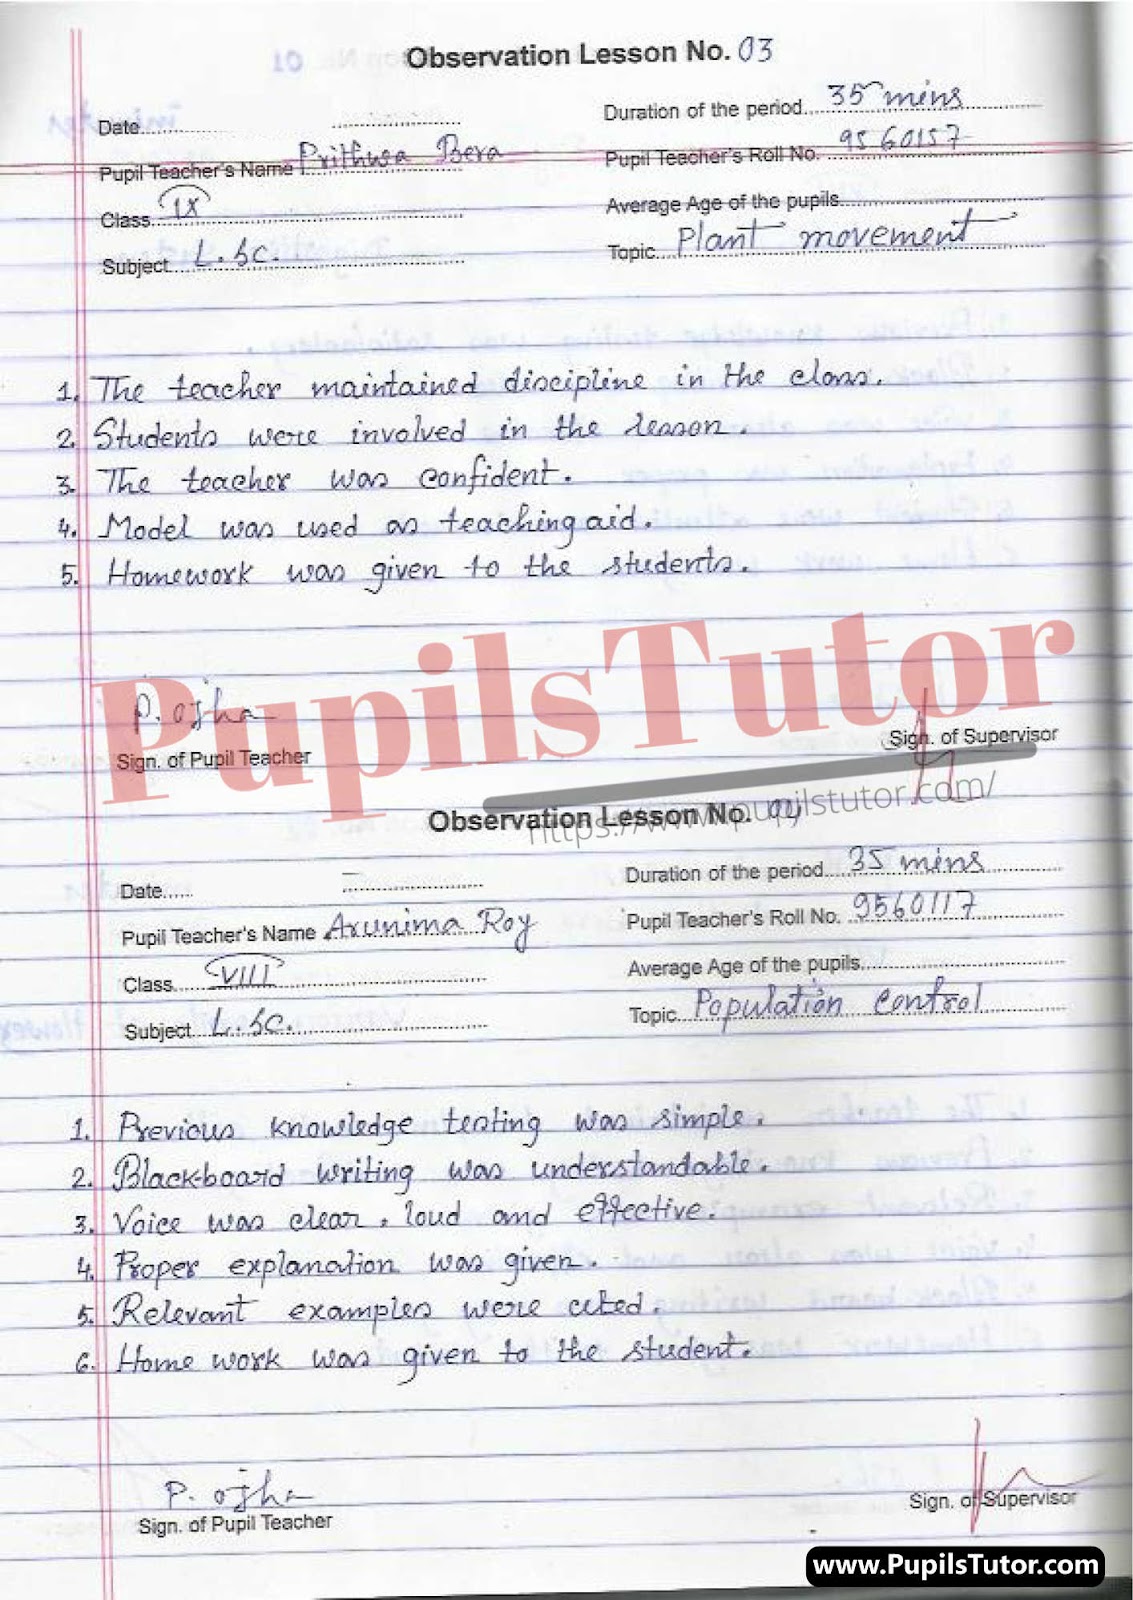 Observation Lesson No. 03
Date
Duration of the period 35 mins
Pupil Teacher's Name Prithwa Bera
Pupil Teacher's Roll No. 9560157
Class IX
Average Age of the pupils
Subject L.Sc.
Topic Plant movement
1. The teacher maintained discipline in the class.
2. Students were involved in the lesson.
3. The teacher was confident.
4. Model was used as teaching aid.
5. Homework was given to the students.
PupilsTutor
P. ojha
Sign. of Pupil Teacher
Sign. of Supervisor
https://www.pupilstutor.com/
Observation Lesson No. 04
Date
Duration of the period 35 mins
Pupil Teacher's Name Arunima Roy
Pupil Teacher's Roll No. 9560117
Class VIII
Average Age of the pupils
Subject L.Sc.
Topic Population control
1. Previous knowledge testing was simple.
2. Black-board writing was understandable.
3. Voice was clear, loud and effective.
4. Proper explanation was given.
5. Relevant examples were cited.
6. Home work was given to the student.
P. ojha
Sign. of Pupil Teacher
Sign. of Supervisor
www.PupilsTutor.com